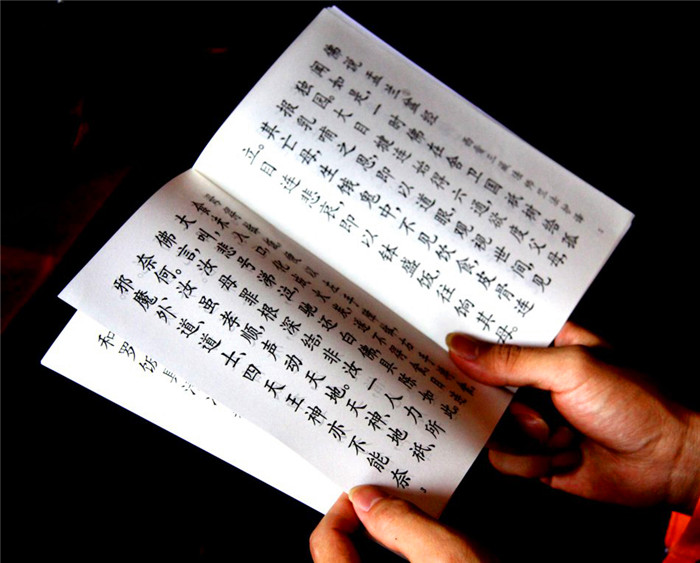 佛说盂兰盆经
西晋三藏法师竺法护译
闻如是,一时佛在舍卫国祇树给孤
独园。大目犍连始得六通,欲度父母,
报乳哺之恩,即以道眼观视世间,见
其亡母,生饿鬼中,不见饮食,皮骨连
立。目连悲哀,即以钵盛饭,往饷其母。
大叫,悲号涕泣,驰还白佛,具陈如此。
佛言,汝母罪根深结,非汝一人力所
奈何。汝虽孝顺,声动天地。天神、地祇、
邪魔、外道、道士、四天王神亦不能奈
和罗饭具